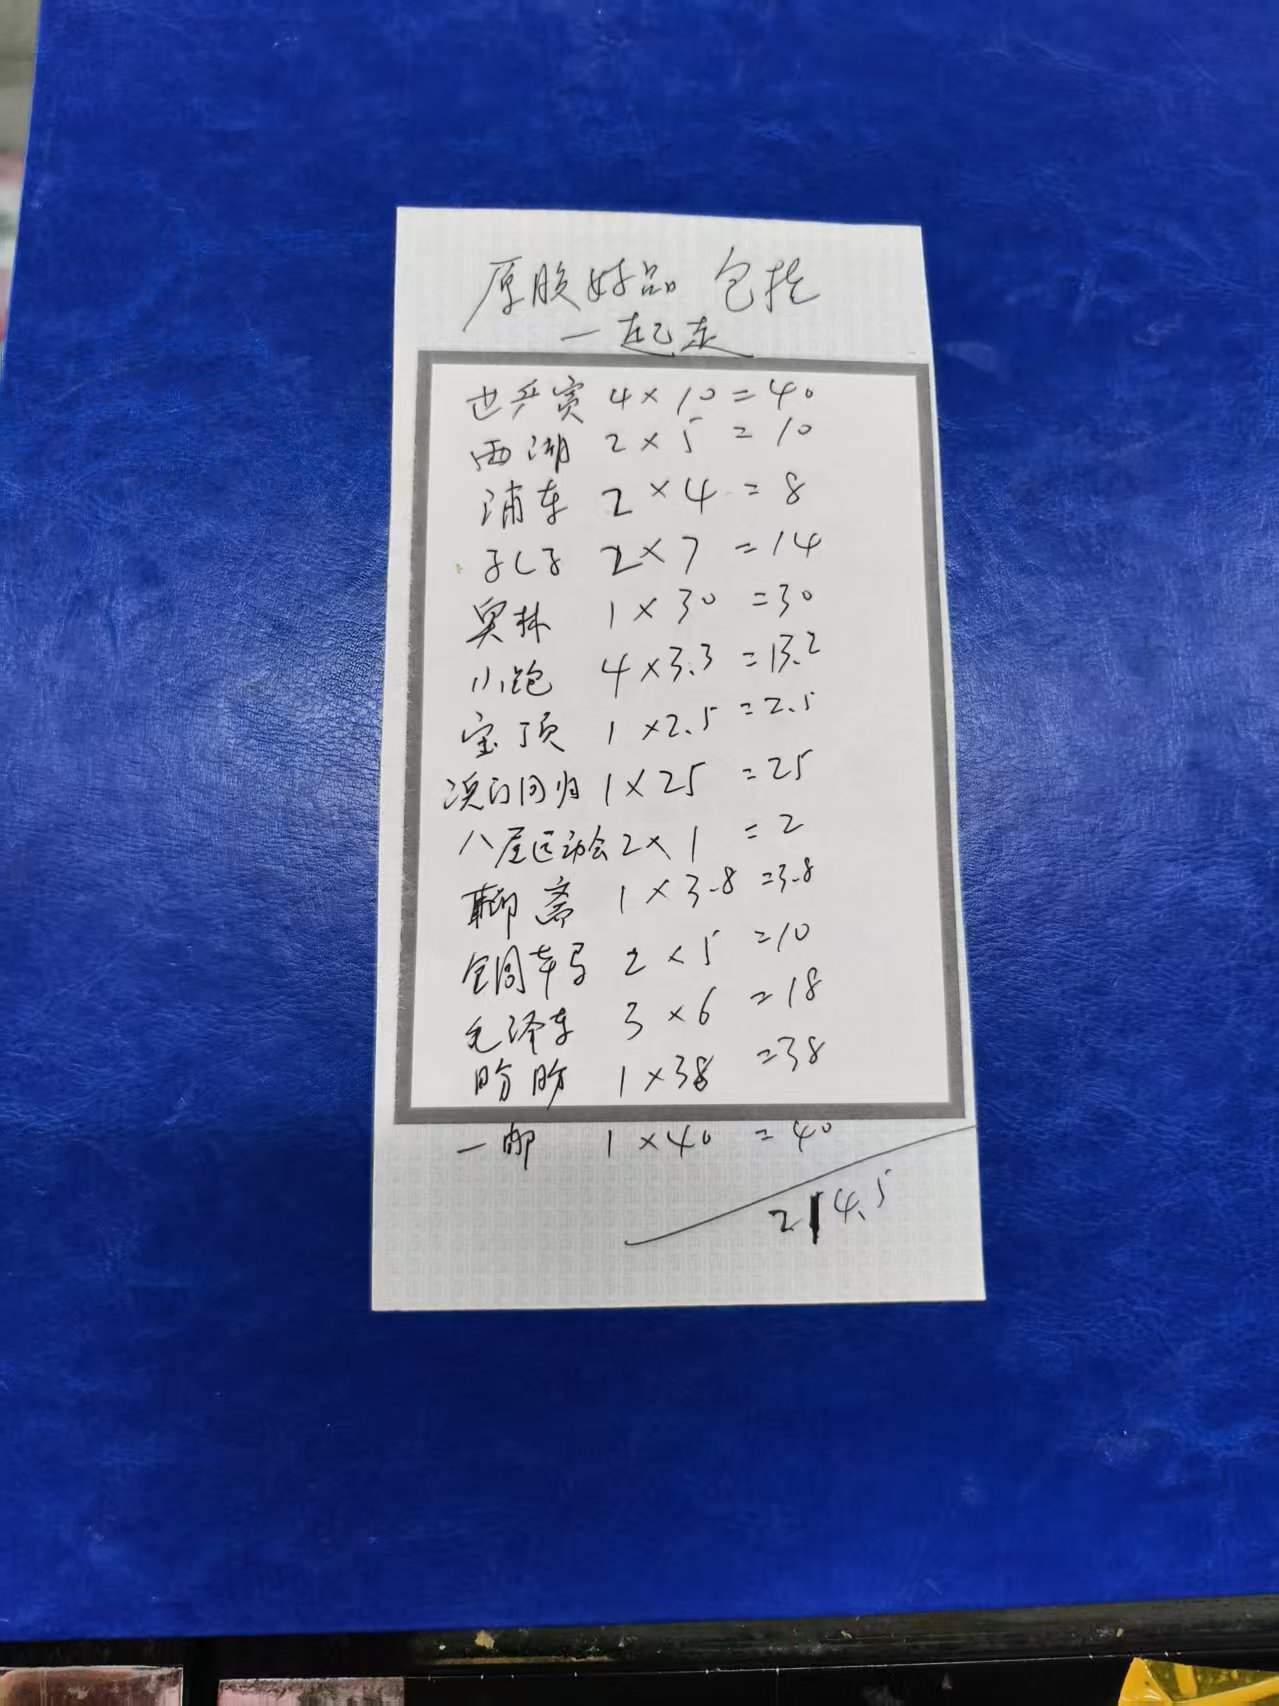 原胶好品 包挂
一起走
世乒赛 4×10=40
西湖 2×5=10
浦东 2×4=8
孔子 2×7=14
奥林 1×30=30
小跑 4×3.3=13.2
宝顶 1×2.5=2.5
澳门回归 1×25=25
八届运动会 2×1=2
聊斋 1×3.8=3.8
全同车马 2×5=10
毛泽东 3×6=18
盼盼 1×38=38
一邮 1×40=40
214.5